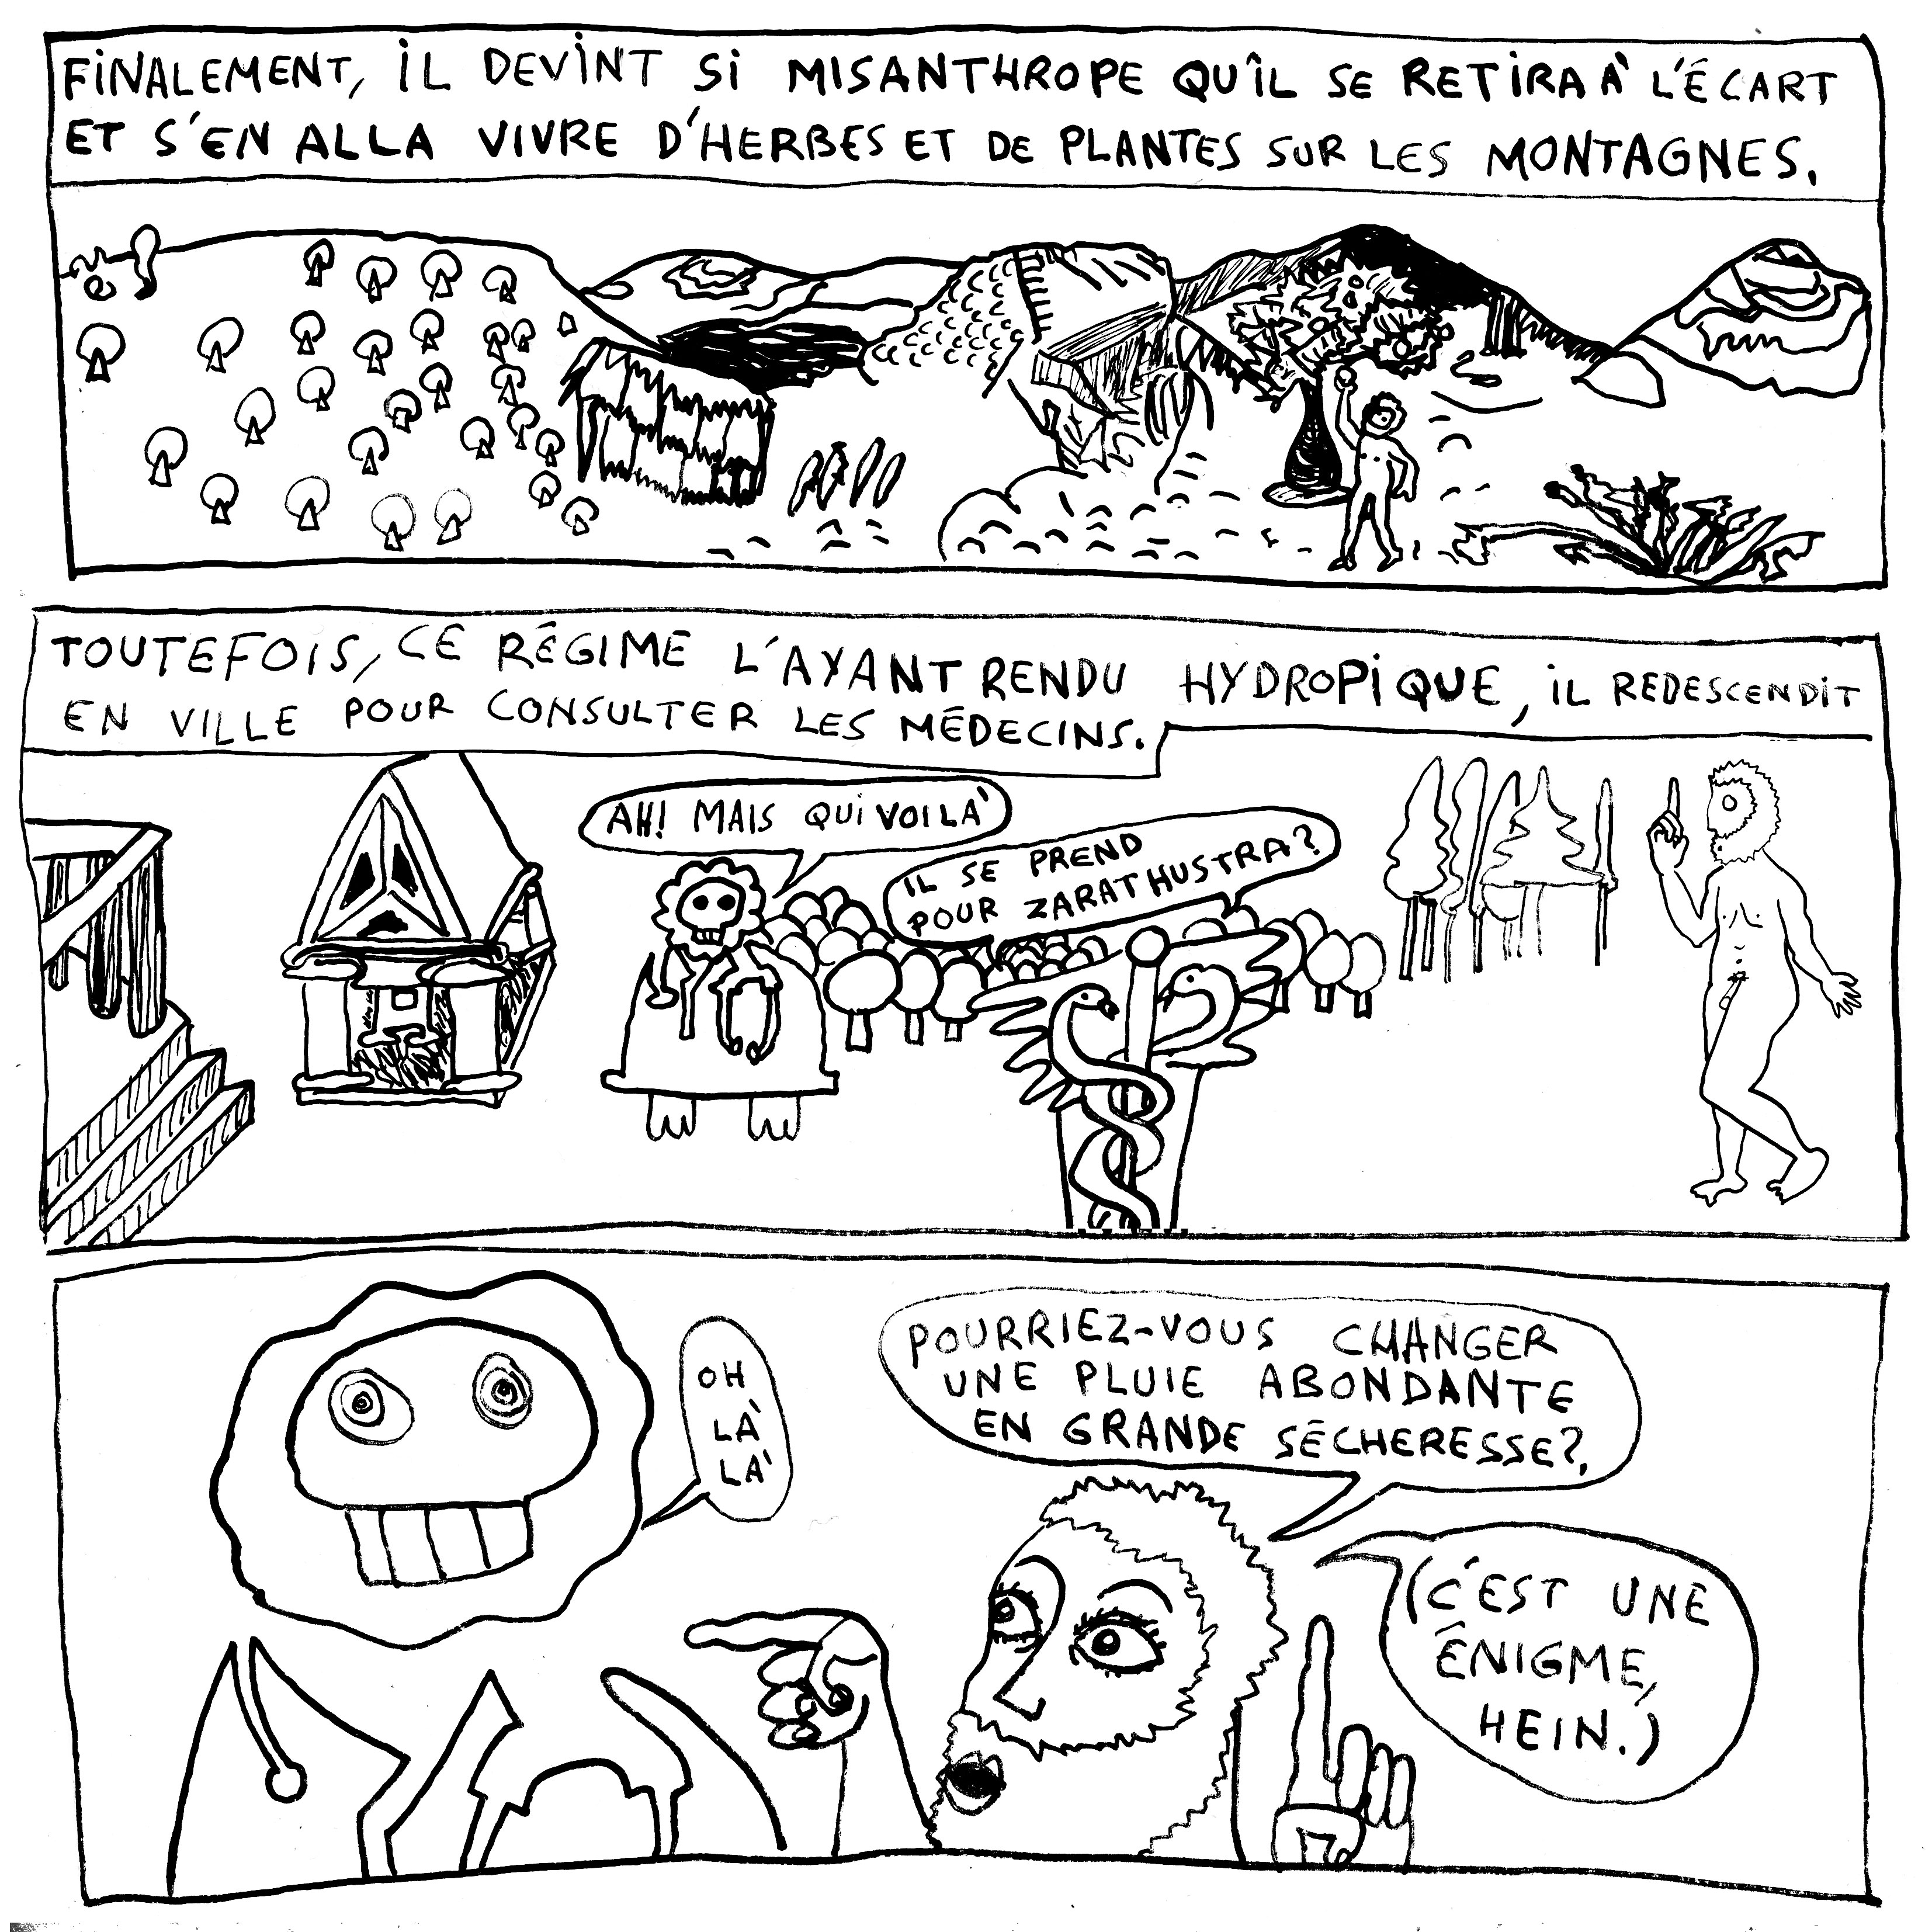 FINALEMENT, IL DEVINT SI MISANTHROPE QU'ÎL SE RETIRA À L'ÉCART
ET S'EN ALLA VIVRE D'HERBES ET DE PLANTES SUR LES MONTAGNES.
TOUTEFOIS, CE RÉGIME L'AYANT RENDU HYDROPIQUE, IL REDESCENDIT
EN VILLE POUR CONSULTER LES MÉDECINS.
AH! MAIS QUI VOILÀ
IL SE PREND
POUR ZARATHUSTRA?
OH
LÀ
LÀ
POURRIEZ-VOUS CHANGER
UNE PLUIE ABONDANTE
EN GRANDE SÉCHERESSE?,
(C'EST UNE
ÉNIGME,
HEIN.)